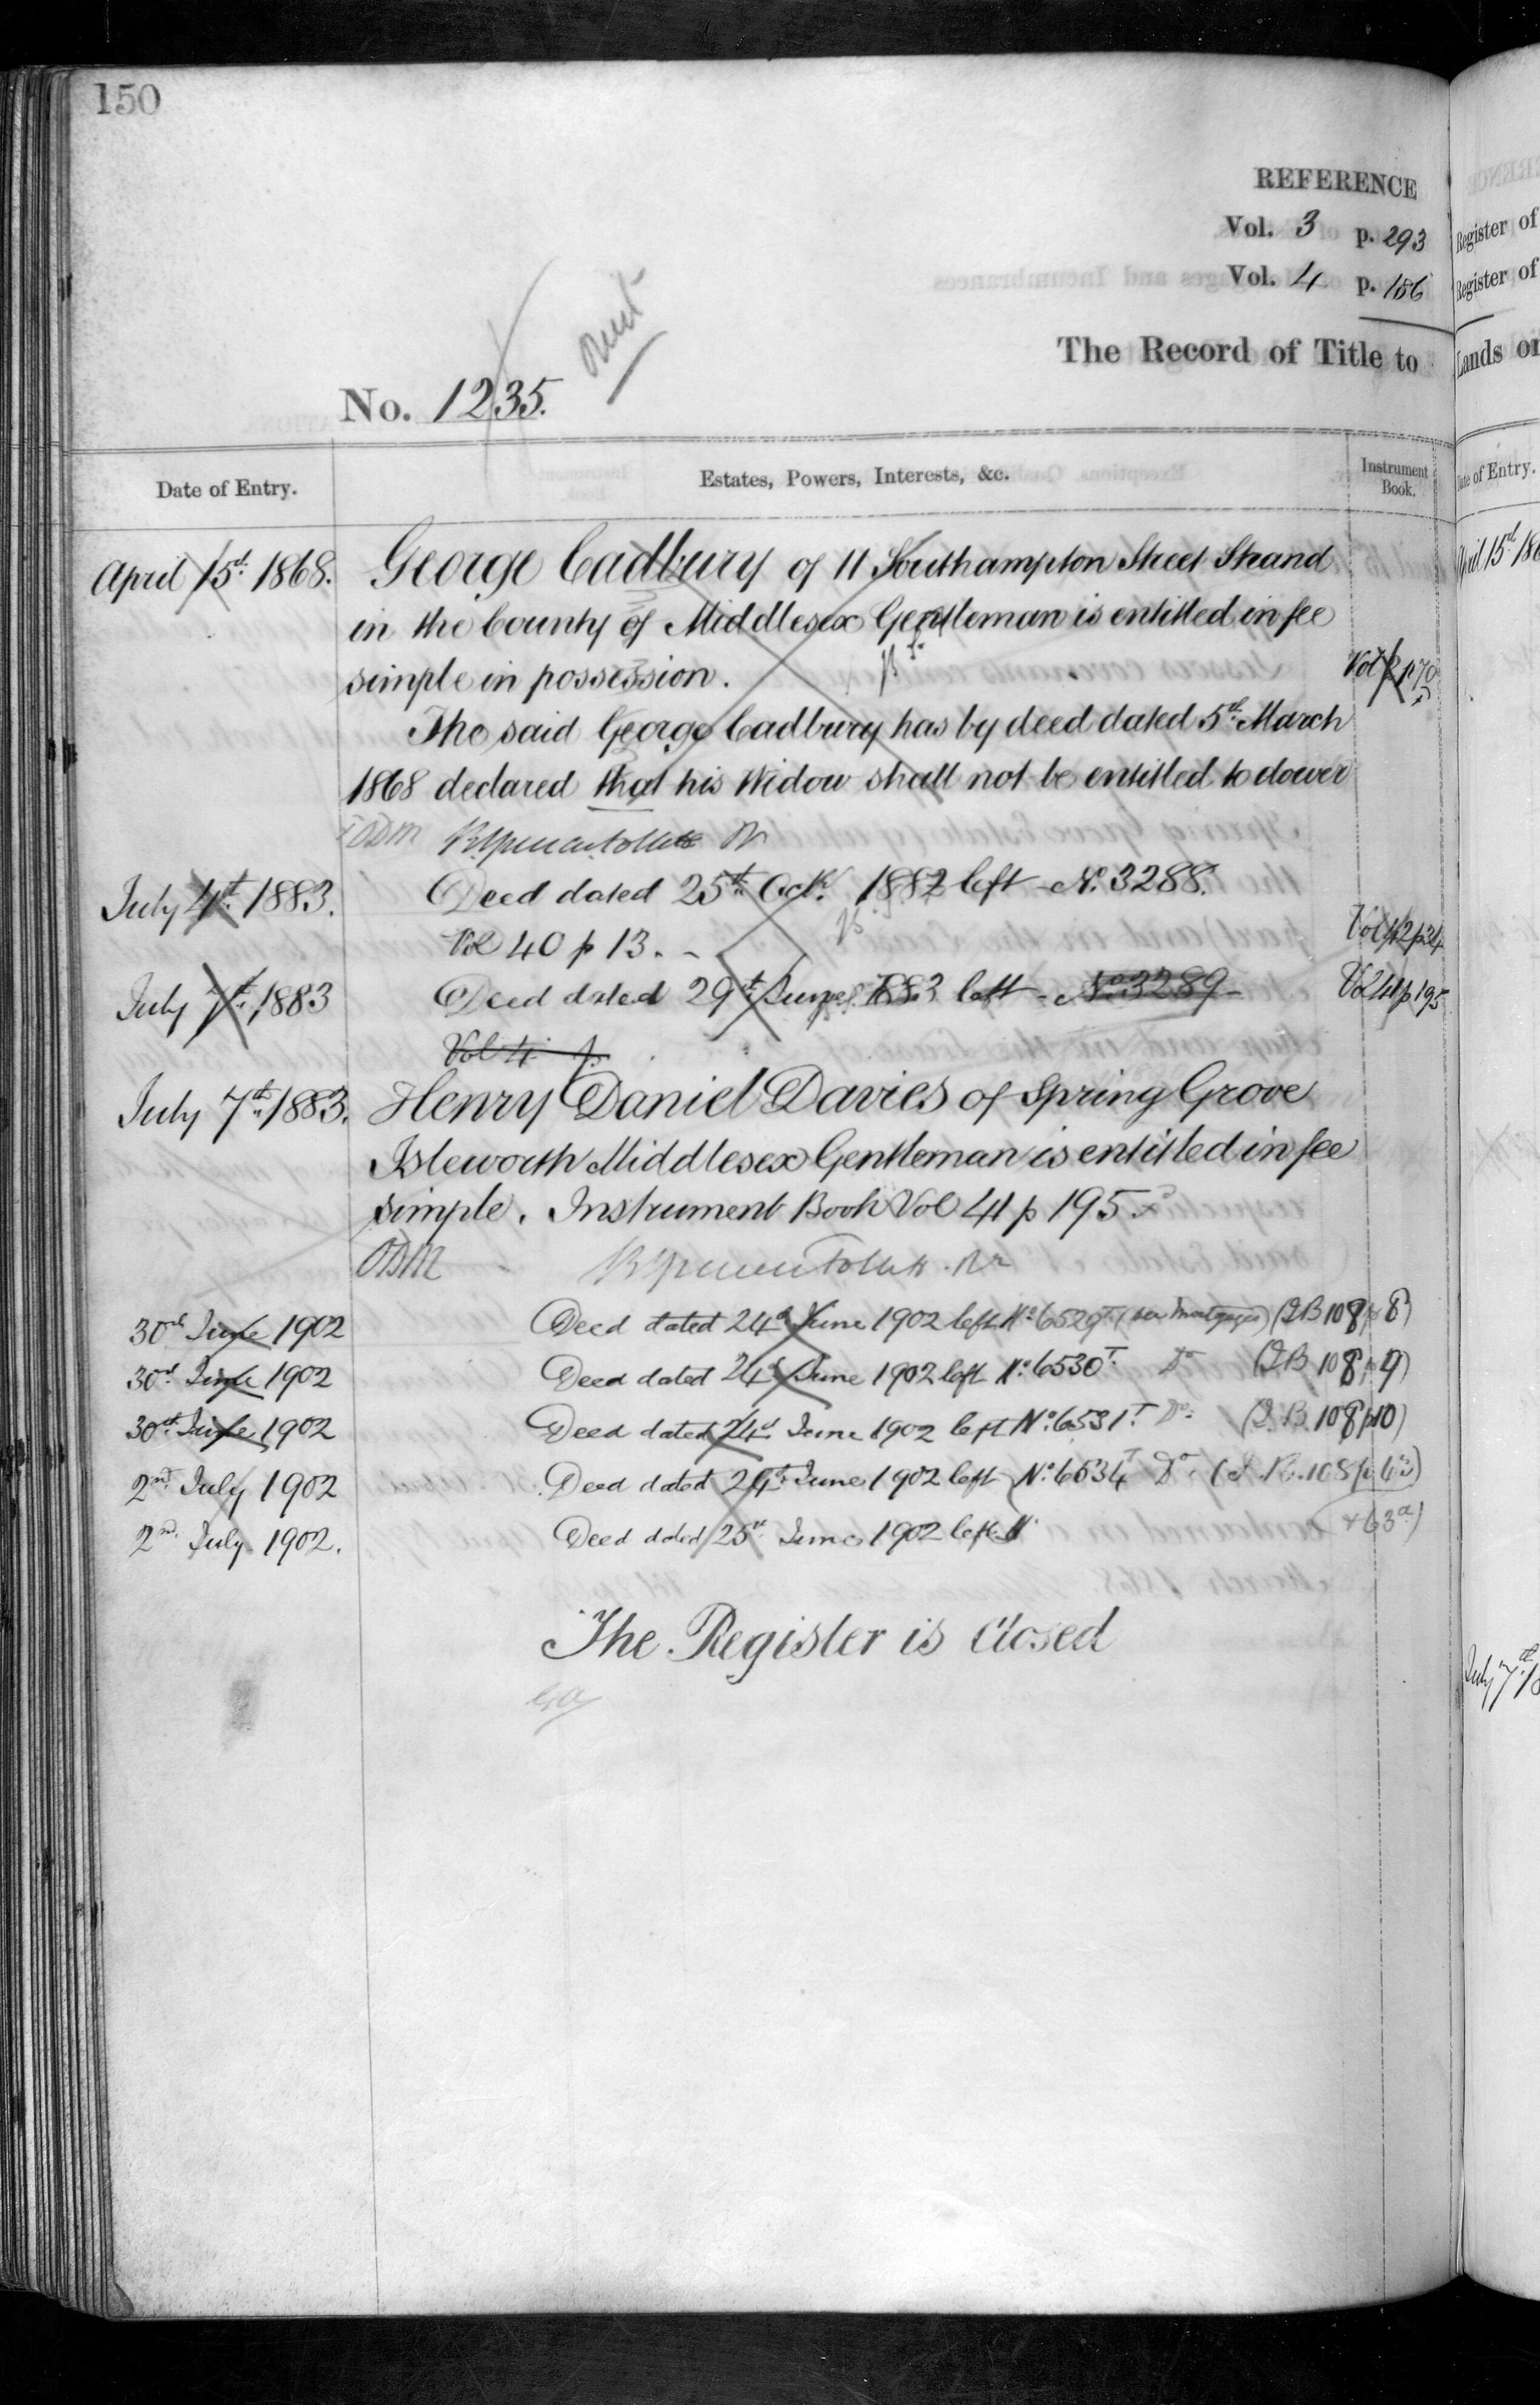 150
REFERENCE
Vol. 3 p. 293
Vol. 4 p. 156
The Record of Title to
No. 1235.
Date of Entry. Estates, Powers, Interests, &c. Instrument Book.
April 15th 1868. George Cadbury of 11 Southampton Street Strand
in the County of Middlesex Gentleman is entitled in fee
simple in possession. Vol
The said George Cadbury has by deed dated 5th March
1868 declared that his Widow shall not be entitled to dower
July 4th 1883. Deed dated 25th Octr. 1882 left - No. 3288.
Vol 40 p 13. - Vol 42 p 34
July 7th 1883 Deed dated 29th June 1883 left - No 3289 - Vol 41 p 195
Vol 4 p.
July 7th 1883. Henry Daniel Davies of Spring Grove
Isleworth Middlesex Gentleman is entitled in fee
simple. Instrument Book Vol 41 p 195.
ODM
30th June 1902 Deed dated 24th June 1902 left No. 6529T (see Mortgages) (I B 108 p 8)
30th June 1902 Deed dated 24th June 1902 left No. 6530T. Do (I B 108 p 9)
30th June 1902 Deed dated 24th June 1902 left No. 6531T. Do. (I. B. 108 p 10)
2nd July 1902 Deed dated 24th June 1902 left No. 6534T Do. (I. B. 108 p 63)
2nd July 1902. Deed dated 25th June 1902 left N + 63a)
The Register is Closed
Register of
Register of
Lands or
Date of Entry.
April 15th 186
July 7th 18